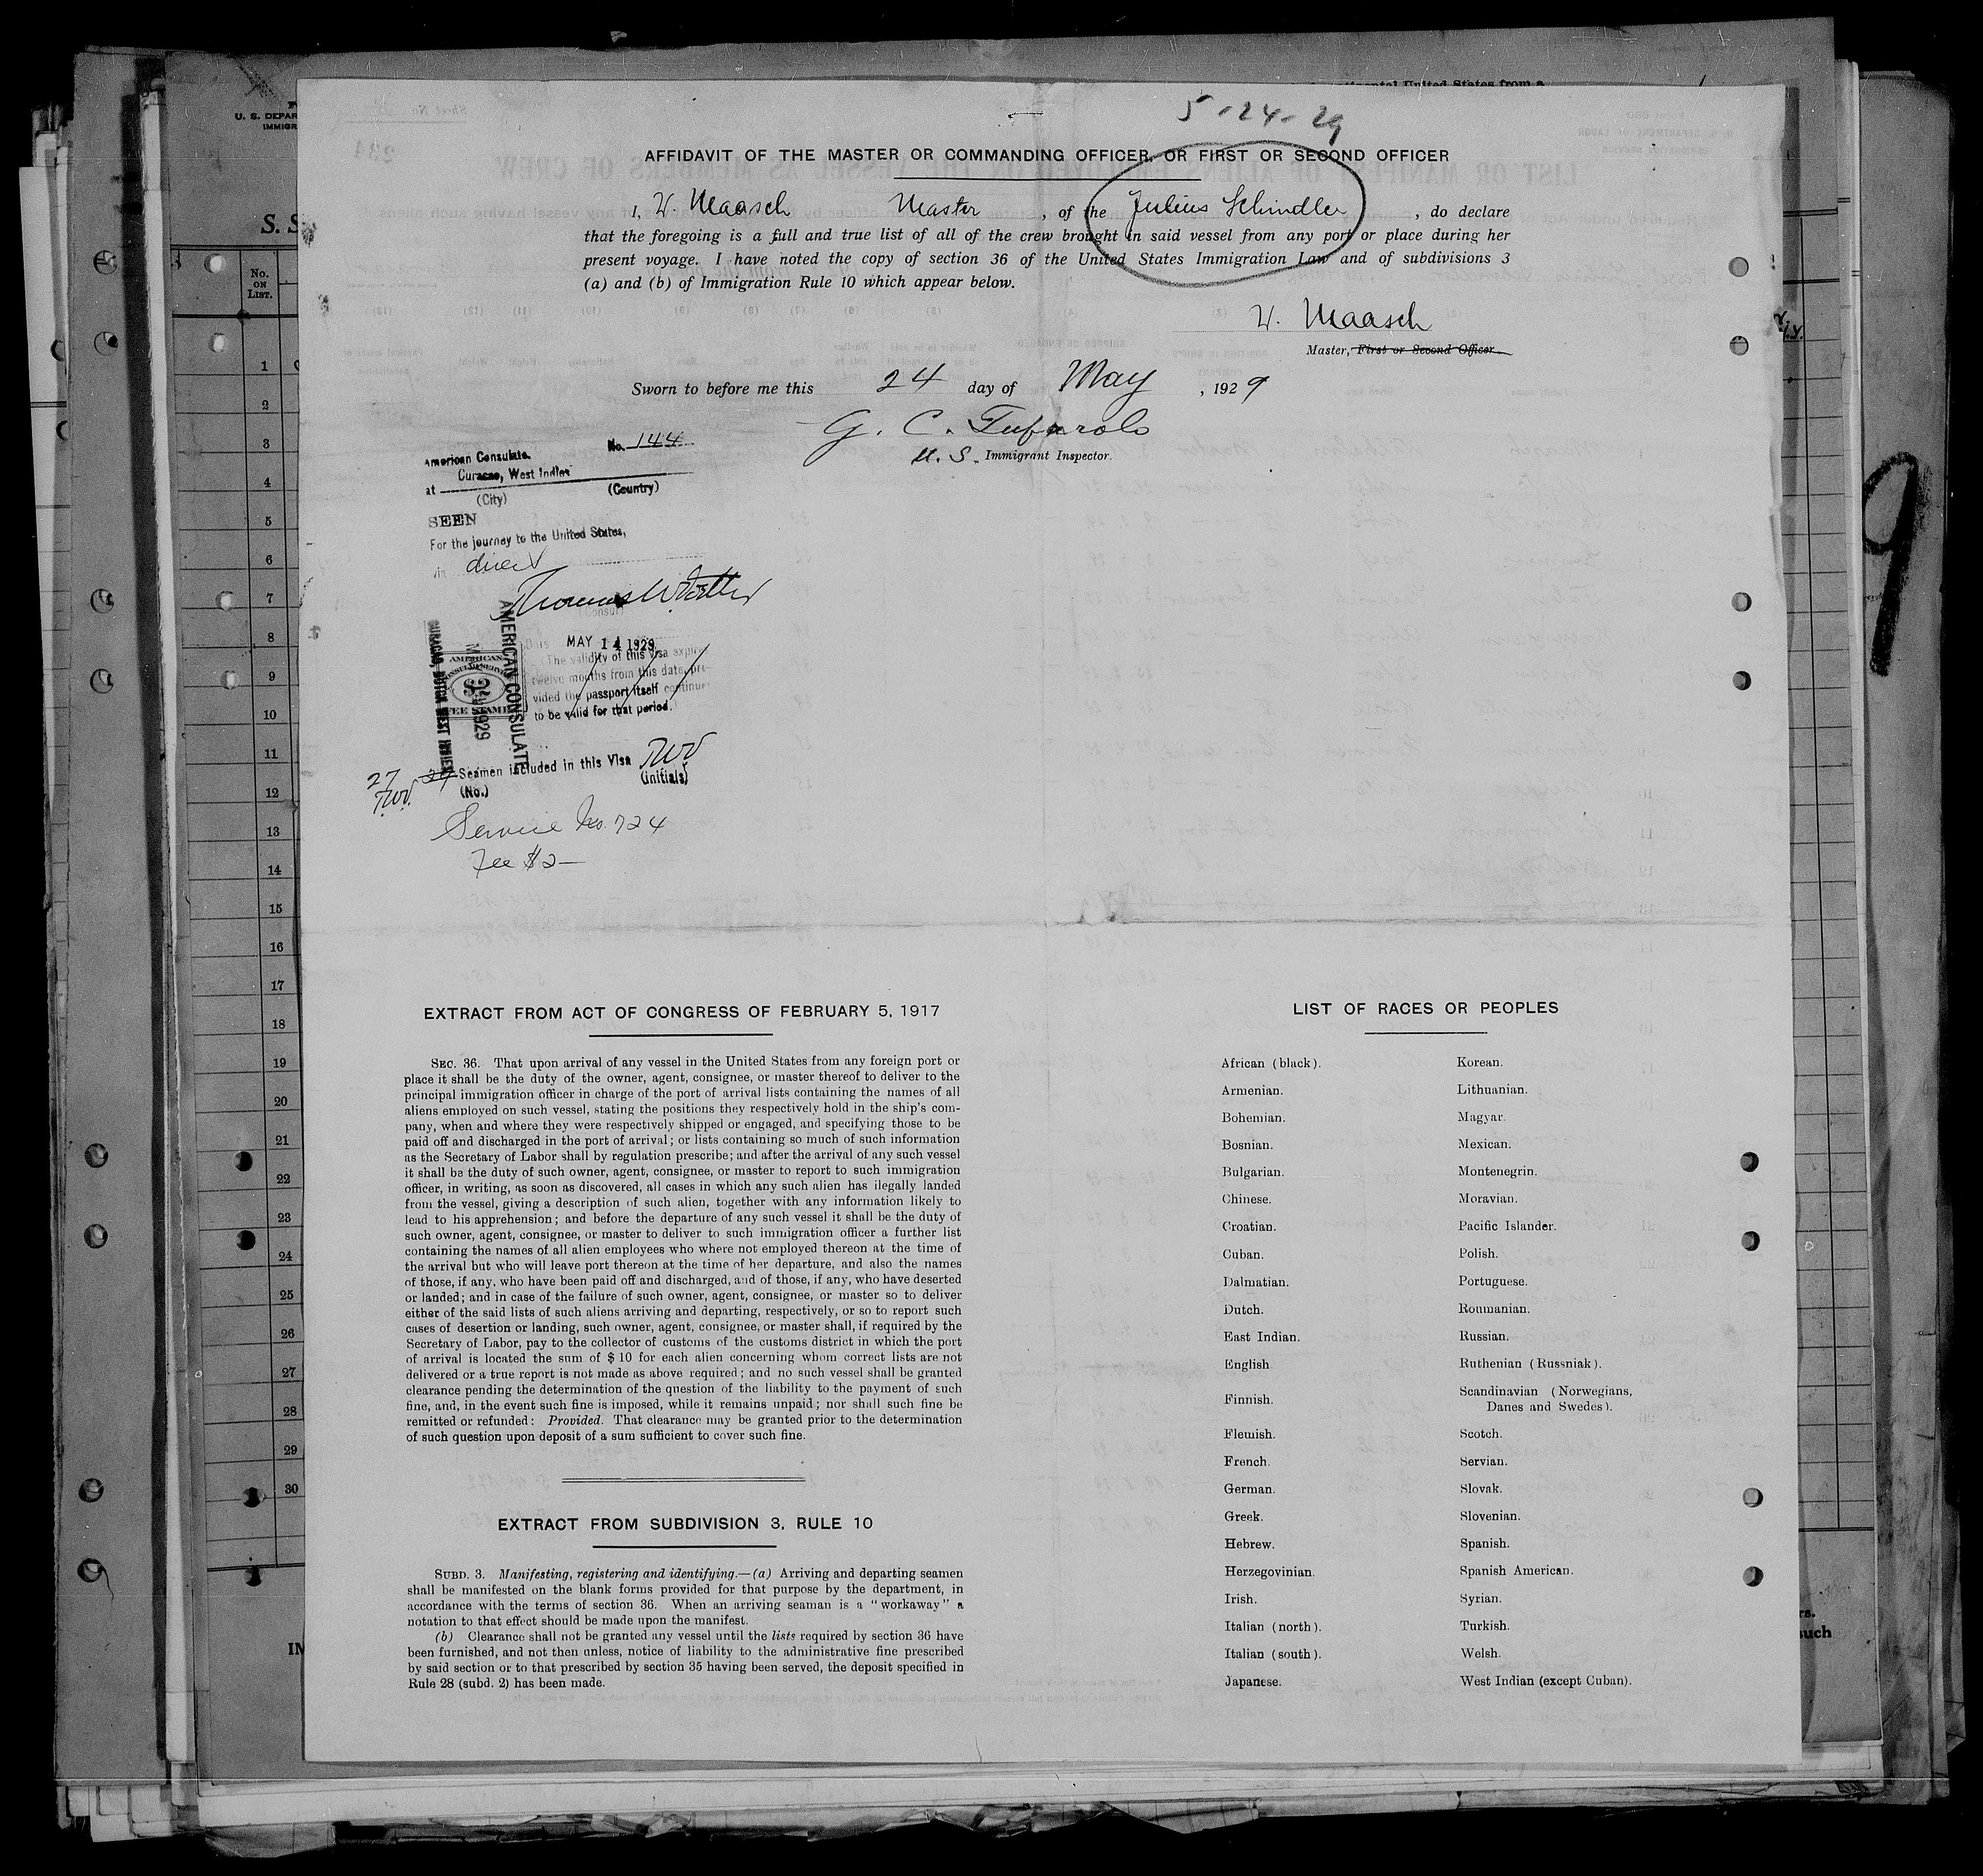 5-24-29
AFFIDAVIT OF THE MASTER OR COMMANDING OFFICER, OR FIRST OR SECOND OFFICER
I, W. Maasch Master, of the Julius Schindler, do declare
that the foregoing is a full and true list of all of the crew brought in said vessel from any port or place during her
present voyage. I have noted the copy of section 36 of the United States Immigration Law and of subdivisions 3
(a) and (b) of Immigration Rule 10 which appear below.
W. Maasch
Master, First or Second Officer.
Sworn to before me this 24 day of May, 1929
G. C. Tufarolo
U. S. Immigrant Inspector.
No. 144
American Consulate.
Curacao, West Indies
at
(City) (Country)
SEEN
For the journey to the United States,
direct
(Consul)
MAY 14 1929
The validity of this visa expires
twelve months from this date, pro-
vided the passport itself continues
to be valid for that period.
AMERICAN CONSULATE
AMERICAN
CONSULAR SERVICE
FEE STAMP
27 Seamen included in this Visa TWV
TWV (No.) (initials)
Service No. 724
Fee $2—
EXTRACT FROM ACT OF CONGRESS OF FEBRUARY 5, 1917
SEC. 36. That upon arrival of any vessel in the United States from any foreign port or
place it shall be the duty of the owner, agent, consignee, or master thereof to deliver to the
principal immigration officer in charge of the port of arrival lists containing the names of all
aliens employed on such vessel, stating the positions they respectively hold in the ship's com-
pany, when and where they were respectively shipped or engaged, and specifying those to be
paid off and discharged in the port of arrival; or lists containing so much of such information
as the Secretary of Labor shall by regulation prescribe; and after the arrival of any such vessel
it shall be the duty of such owner, agent, consignee, or master to report to such immigration
officer, in writing, as soon as discovered, all cases in which any such alien has ilegally landed
from the vessel, giving a description of such alien, together with any information likely to
lead to his apprehension; and before the departure of any such vessel it shall be the duty of
such owner, agent, consignee, or master to deliver to such immigration officer a further list
containing the names of all alien employees who where not employed thereon at the time of
the arrival but who will leave port thereon at the time of her departure, and also the names
of those, if any, who have been paid off and discharged, and of those, if any, who have deserted
or landed; and in case of the failure of such owner, agent, consignee, or master so to deliver
either of the said lists of such aliens arriving and departing, respectively, or so to report such
cases of desertion or landing, such owner, agent, consignee, or master shall, if required by the
Secretary of Labor, pay to the collector of customs of the customs district in which the port
of arrival is located the sum of $ 10 for each alien concerning whom correct lists are not
delivered or a true report is not made as above required; and no such vessel shall be granted
clearance pending the determination of the question of the liability to the payment of such
fine, and, in the event such fine is imposed, while it remains unpaid; nor shall such fine be
remitted or refunded: Provided. That clearance may be granted prior to the determination
of such question upon deposit of a sum sufficient to cover such fine.
EXTRACT FROM SUBDIVISION 3, RULE 10
SUBD. 3. Manifesting, registering and identifying.—(a) Arriving and departing seamen
shall be manifested on the blank forms provided for that purpose by the department, in
accordance with the terms of section 36. When an arriving seaman is a "workaway" a
notation to that effect should be made upon the manifest.
(b) Clearance shall not be granted any vessel until the lists required by section 36 have
been furnished, and not then unless, notice of liability to the administrative fine prescribed
by said section or to that prescribed by section 35 having been served, the deposit specified in
Rule 28 (subd. 2) has been made.
LIST OF RACES OR PEOPLES
African (black).
Armenian.
Bohemian.
Bosnian.
Bulgarian.
Chinese.
Croatian.
Cuban.
Dalmatian.
Dutch.
East Indian.
English
Finnish.
Flemish.
French.
German.
Greek.
Hebrew.
Herzegovinian.
Irish.
Italian (north).
Italian (south).
Japanese.
Korean.
Lithuanian.
Magyar.
Mexican.
Montenegrin.
Moravian.
Pacific Islander.
Polish.
Portuguese.
Roumanian.
Russian.
Ruthenian (Russniak).
Scandinavian (Norwegians,
Danes and Swedes).
Scotch.
Servian.
Slovak.
Slovenian.
Spanish.
Spanish American.
Syrian.
Turkish.
Welsh.
West Indian (except Cuban).
No.
ON
LIST.
1
2
3
4
5
6
7
8
9
10
11
12
13
14
15
16
17
18
19
20
21
22
23
24
25
26
27
28
29
30
9